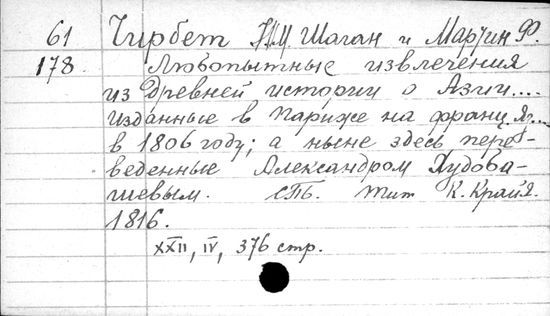 61 Чирбет Ж.М. Шаган и Мартин Ф.
178. Любопытные извлечения
из Древней истории о Азии....
изданные в Париже на франц. яз....
в 1806 году; а ныне здесь пере-
веденные Александром Худоба-
шевым. СПб. тип К. Крайя.
1816.
XXII, IV, 376 стр.